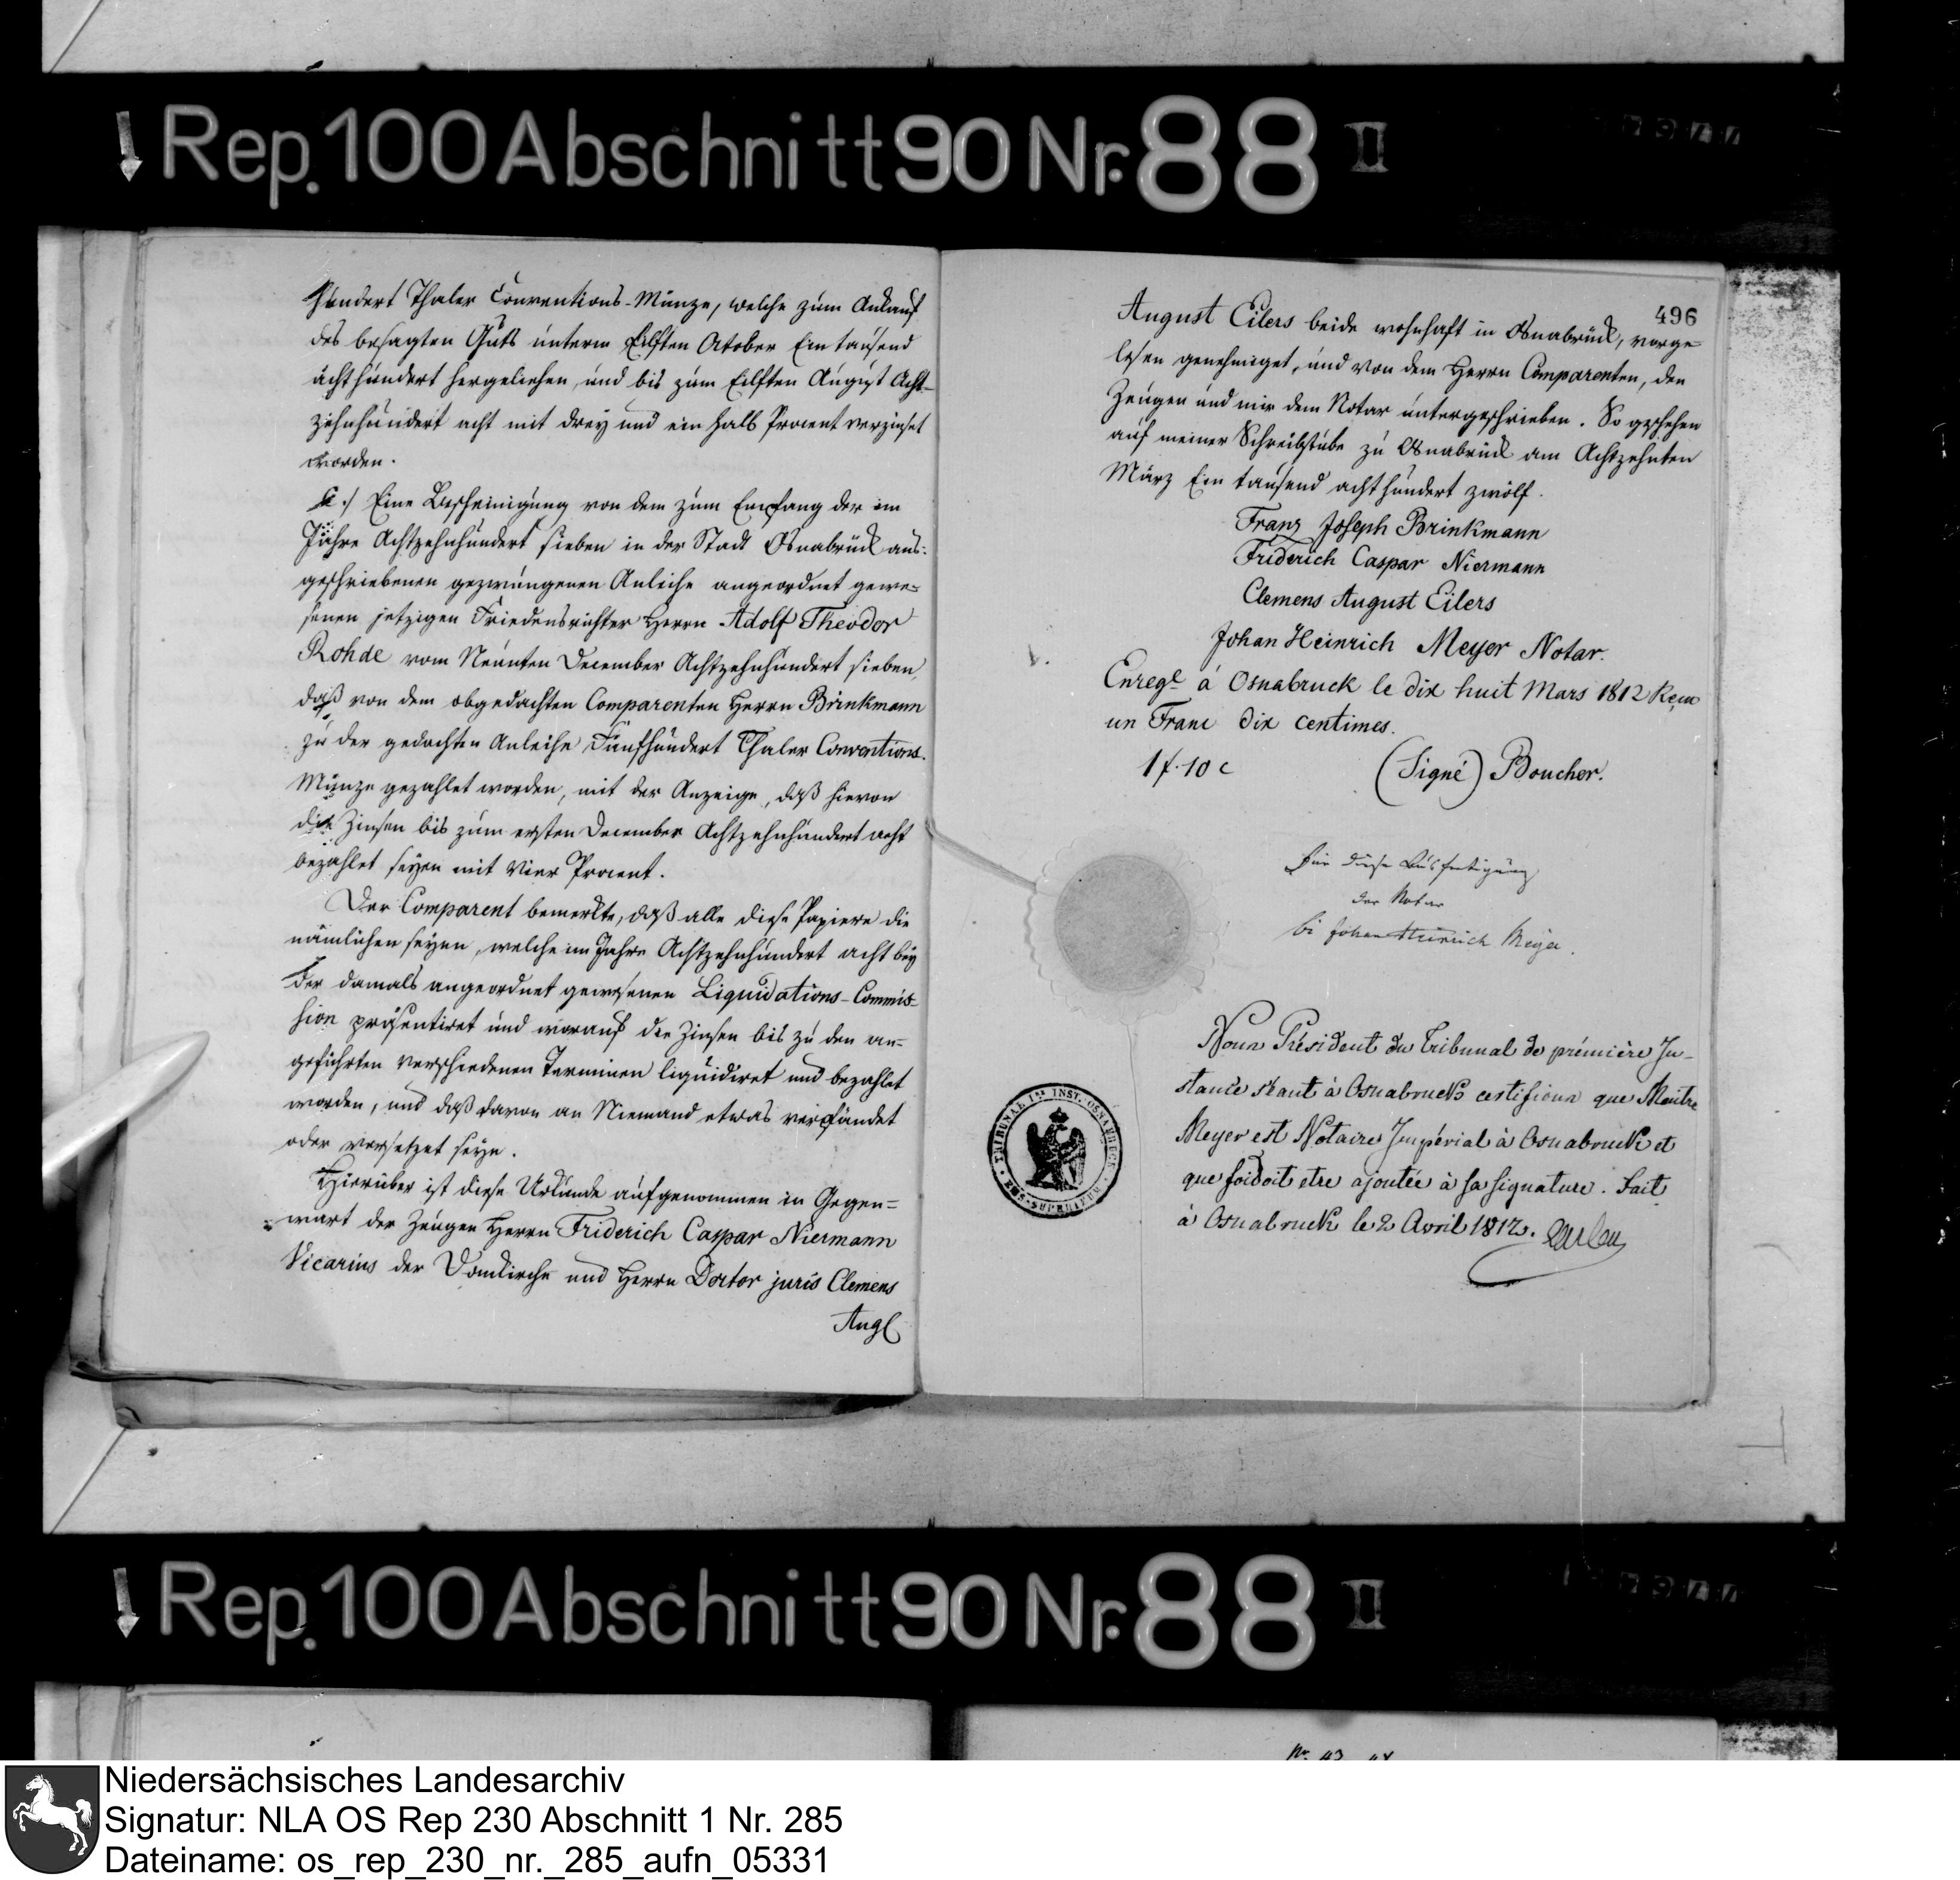 Rep. 100 Abschnitt 90 Nr. 88 II
hundert Thaler Conventions-Münze, welche zum Ankauf
des besagten Guts unterm Eilften October Ein tausend
acht hundert hergeliehen, und bis zum Eilften August Acht-
zehnhundert acht mit drey und ein halb Procent verzinset
worden.
Eine Bescheinigung von dem zum Empfang der im
Jahre Achtzehnhundert sieben in der Stadt Osnabrück aus-
geschriebenen gezwungenen Anleihe angeordnet gewe-
senen jetzigen Friedensrichter Herrn Adolf Theodor
Rohde vom Neunten December Achtzehnhundert sieben,
daß von dem obgedachten Comparenten Herrn Brinkmann
zu der gedachten Anleihe Fünfhundert Thaler Conventions-
Münze gezahlet worden, mit der Anzeige, daß hievon
die Zinsen bis zum ersten December Achtzehnhundert acht
bezahlet seyen mit Vier Procent.
Der Comparent bemerkte, daß alle diese Papiere die
nämlichen seyen, welche im Jahre Achtzehnhundert acht bey
der damals angeordnet gewesenen Liquidations-Commis-
sion präsentiret und worauf die Zinsen bis zu den an-
geführten verschiedenen Terminen liquidiret und bezahlet
worden, und daß davon an Niemand etwas verpfändet
oder versetzet seye.
Hierüber ist diese Urkunde aufgenommen in Gegen-
wart der Zeugen Herrn Friderich Caspar Niermann
Vicarius der Domkirche und Herrn Doctor juris Clemens
Aug
496
August Eilers beide wohnhaft in Osnabrück, vorge-
lesen genehmiget, und von dem Herrn Comparenten, den
Zeugen und mir dem Notar untergeschrieben. So geschehen
auf meiner Schreibstube zu Osnabrück am Achtzehnten
März Ein tausend acht hundert zwölf.
Franz Joseph Brinkmann
Friderich Caspar Niermann
Clemens August Eilers
Johan Heinrich Meyer Notar.
Enregé à Osnabruck le dix huit Mars 1812 Reçu
un Franc dix centimes.
1 f. 10 c (Signé) Boucher.
Für diese Ausfertigung
der Notar
Johan Heinrich Meyer.
TRIBUNAL Ire INST. OSNABRUCK
EMS-SUPERIEUR
Nous Président du Tribunal de première In-
stance séant à Osnabruck certifions que Maitre
Meyer est Notaire Impérial à Osnabruck et
que foi doit etre ajoutée à sa signature. Fait
à Osnabruck le 2 Avril 1812.
Rep. 100 Abschnitt 90 Nr. 88 II
Niedersächsisches Landesarchiv
Signatur: NLA OS Rep 230 Abschnitt 1 Nr. 285
Dateiname: os_rep_230_nr._285_aufn_05331